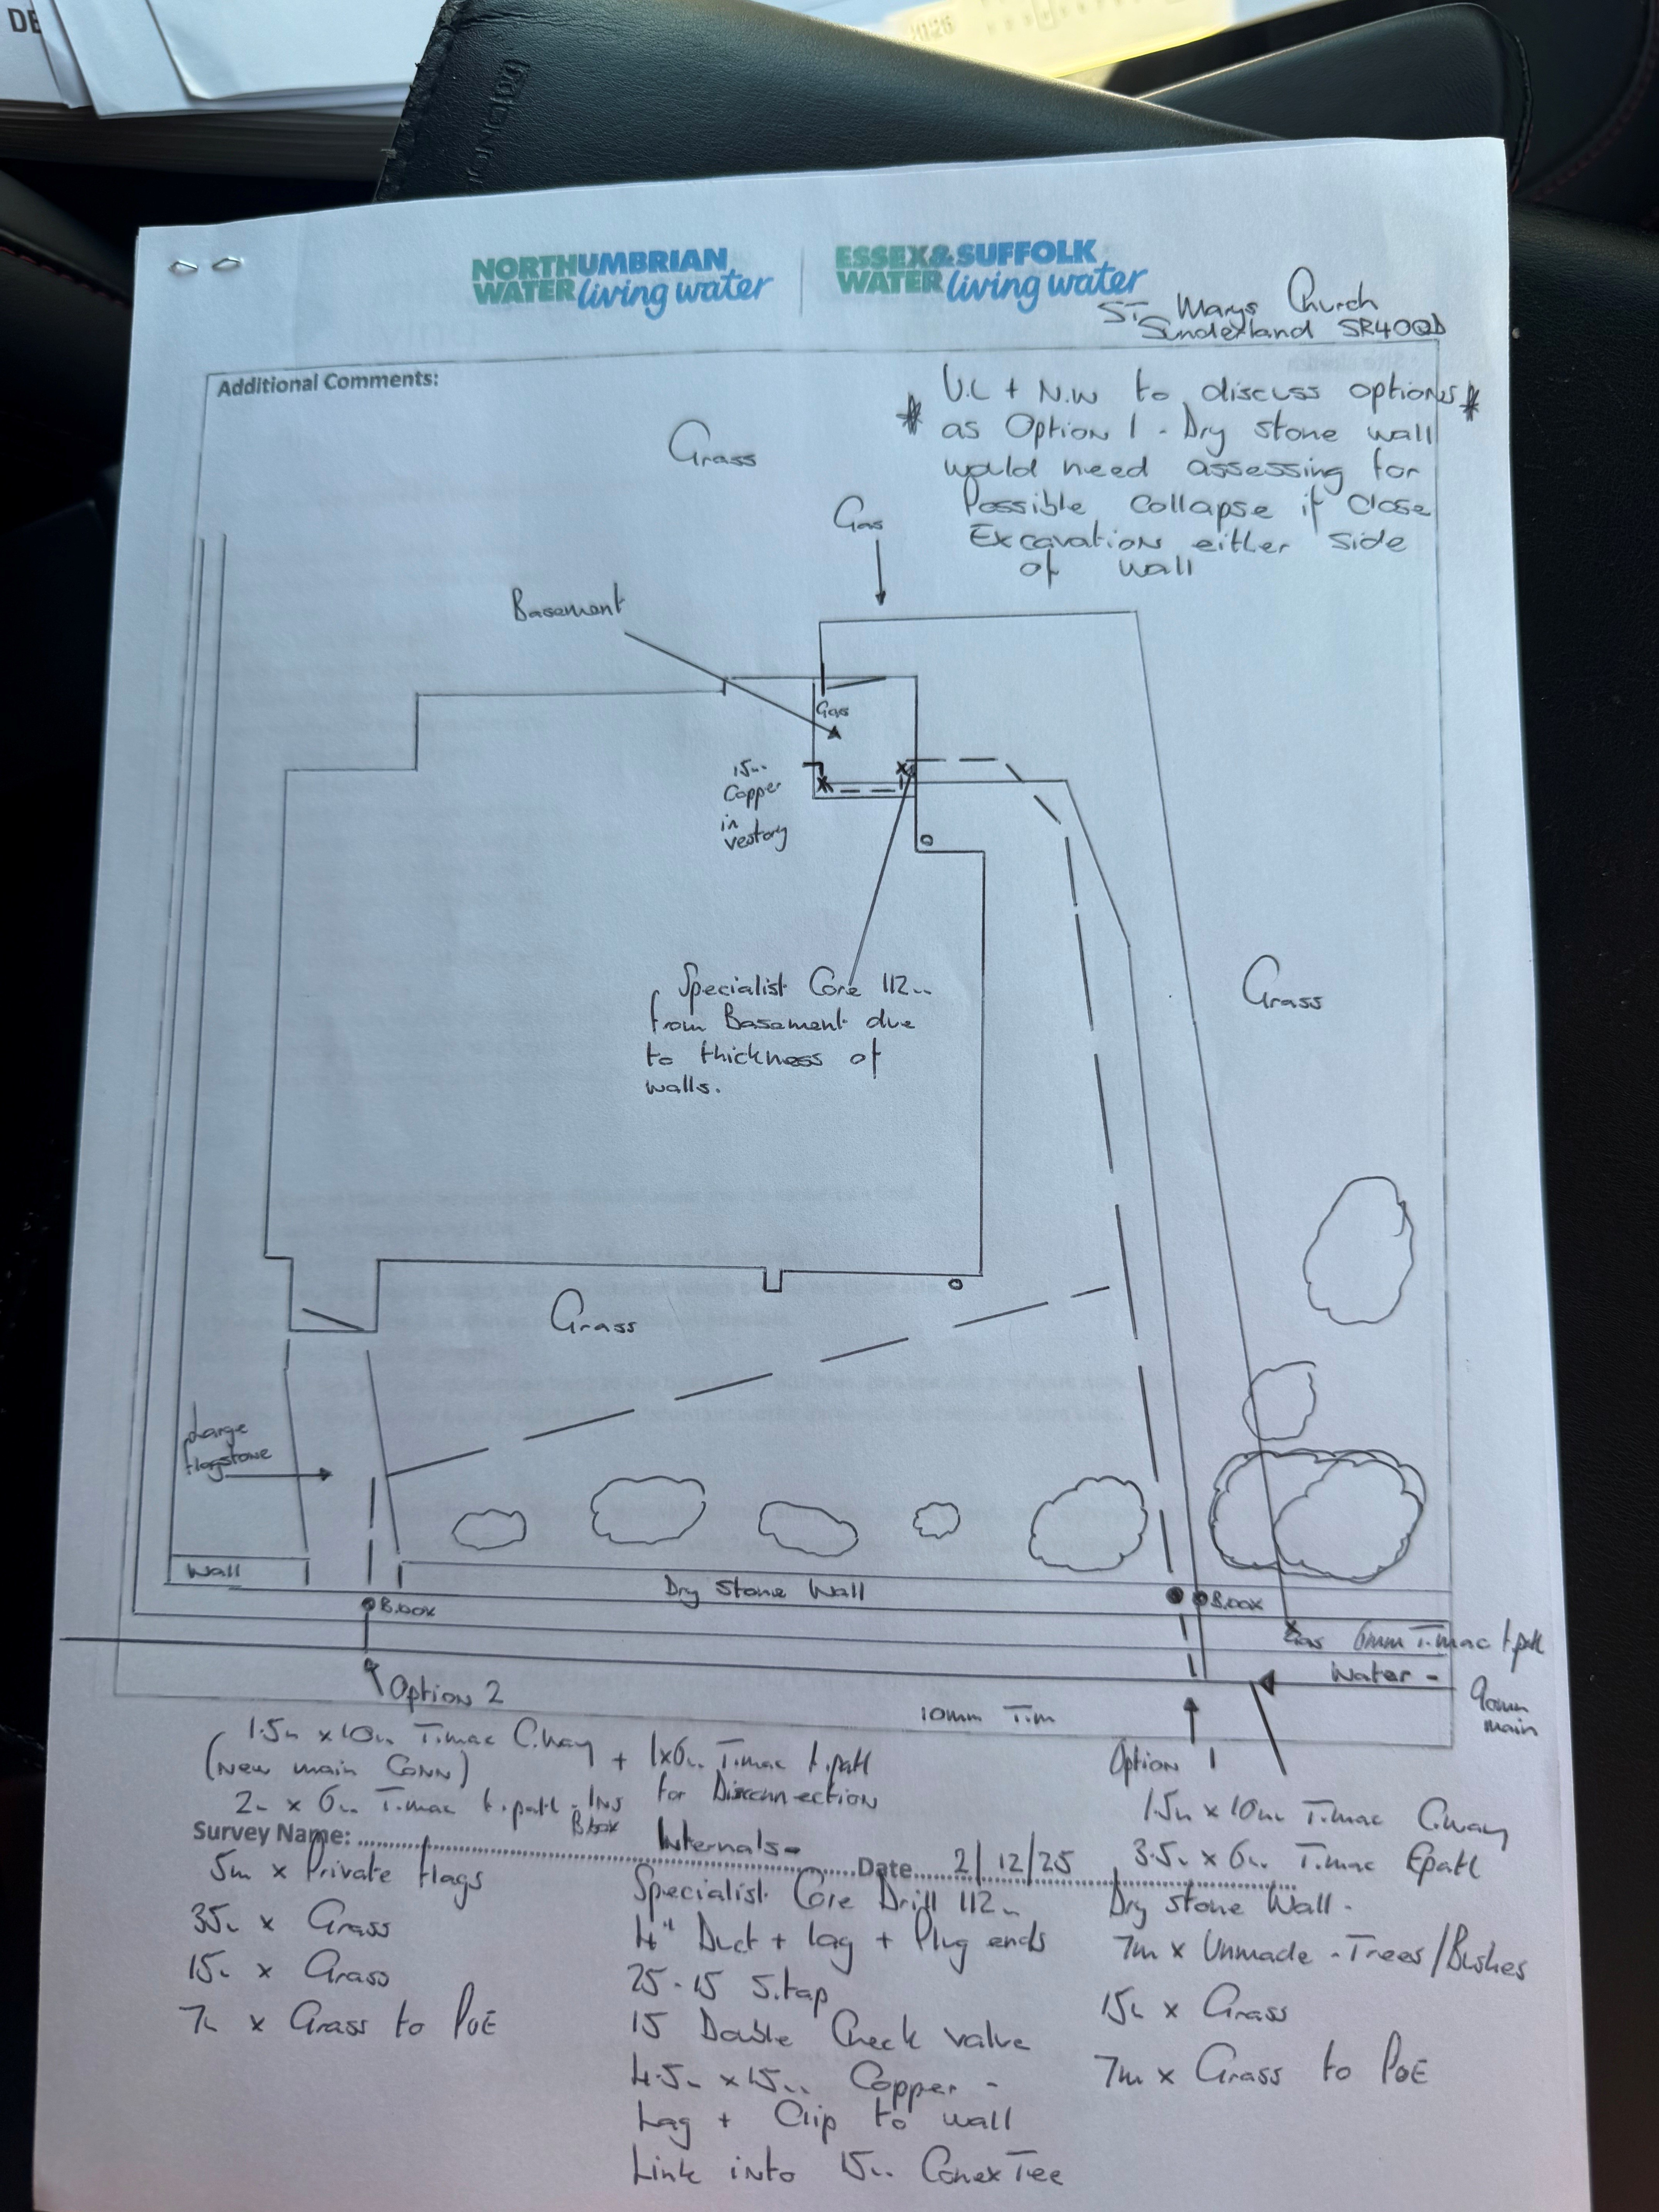 NORTHUMBRIAN
WATER living water
ESSEX&SUFFOLK
WATER living water
ST. Marys Church
Sunderland SR40QD
Additional Comments:
* U.L + N.W to discuss options *
as Option 1 - Dry stone wall
would need assessing for
Possible Collapse if close
Excavation either side
of wall
Grass
Gas
Basement
Gas
15mm
Copper
in
vestory
Specialist Core 112mm
from Basement due
to thickness of
walls.
Grass
Grass
Large
flagstone
Wall
Dry Stone Wall
B.box
B.box
Gas
6mm T.mac f.path
Water -
90mm
main
Option 2
10mm T.m
Option 1
1.5m x 10mm T.mac C.way + 1x6mm T.mac f.path
(New main Conn) for Disconnection
2m x 6mm T.mac f.path - Ins
B.box
Survey Name:
Date 2/12/25
5m x Private flags
35m x Grass
15m x Grass
7m x Grass to PoE
Internals -
Specialist Core Drill 112mm
4" Duct + lag + Plug ends
25-15 S.tap
15 Double Check valve
4.5m x 15mm Copper -
Lag + Clip to wall
Link into 15mm Conex Tee
1.5m x 10mm T.mac C.way
3.5m x 6mm T.mac f.path
Dry stone Wall -
7m x Unmade - Trees/Bushes
15m x Grass
7m x Grass to PoE